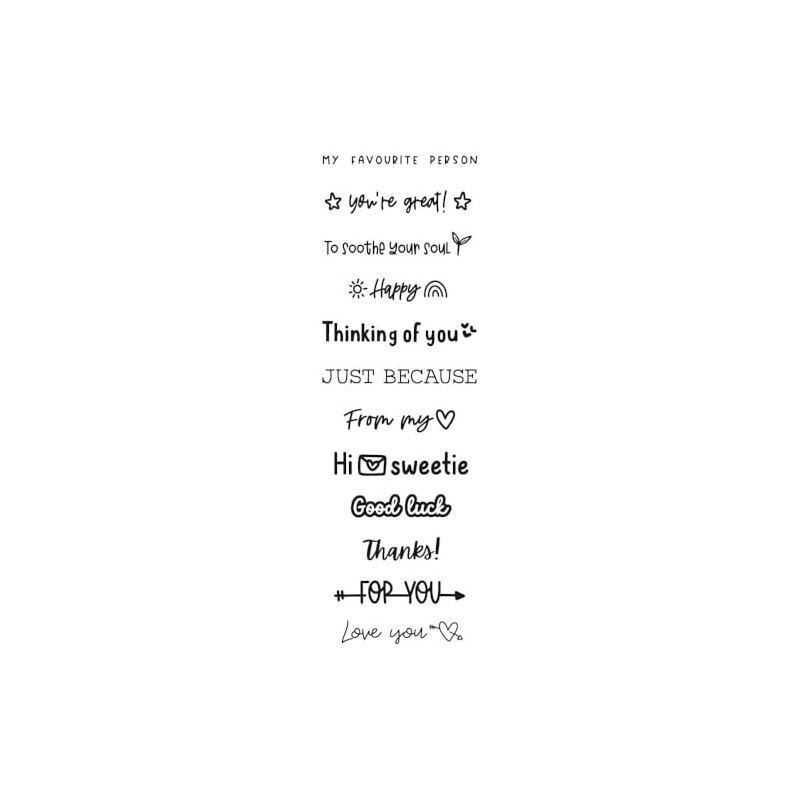 MY FAVOURITE PERSON
you're great!
To soothe your soul
Happy
Thinking of you
JUST BECAUSE
From my
Hi sweetie
Good luck
Thanks!
FOR YOU
Love you